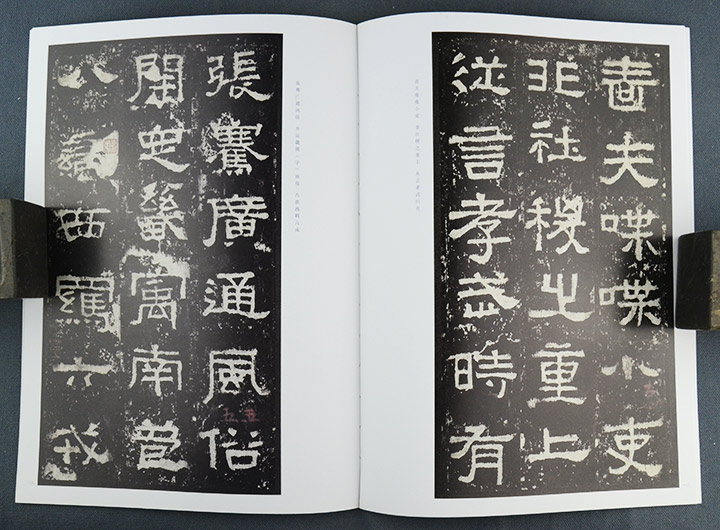 嗇夫喋喋小吏
非社稷之重上
從言孝武時有
張騫廣通風俗
開定畿寓南苞
八蠻西羈六戎